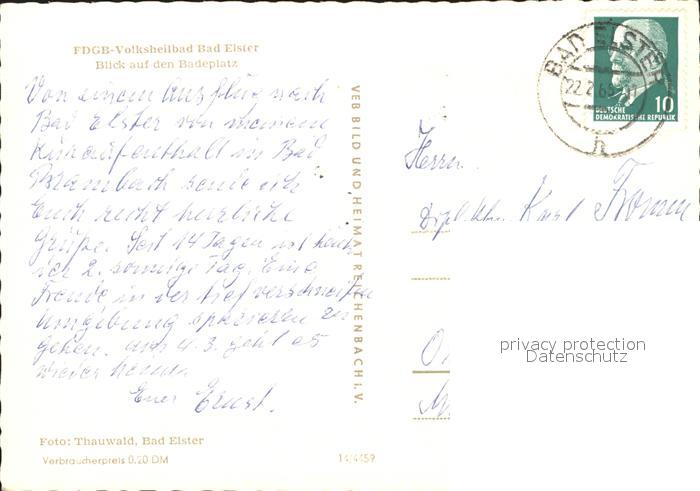 FDGB-Volksheilbad Bad Elster
Blick auf den Badeplatz
Von einem Ausflug nach
Bad Elster von meinem
Kuraufenthalt in Bad
Brambach sende ich
Euch recht herzliche
Grüße. Seit 14 Tagen ist heute
der 2. sonnige Tag. Eine
Freude in der tiefverschneiten
Umgebung spazieren zu
gehen. Am 4.3. geht es
wieder heim.
Euer Ernst.
Foto: Thauwald, Bad Elster
Verbraucherpreis 0,20 DM
14/4459
VEB BILD UND HEIMAT REICHENBACH i. V.
BAD ELSTER
22.2.65
h
10
DEUTSCHE
DEMOKRATISCHE REPUBLIK
Herrn
Karl
privacy protection
Datenschutz